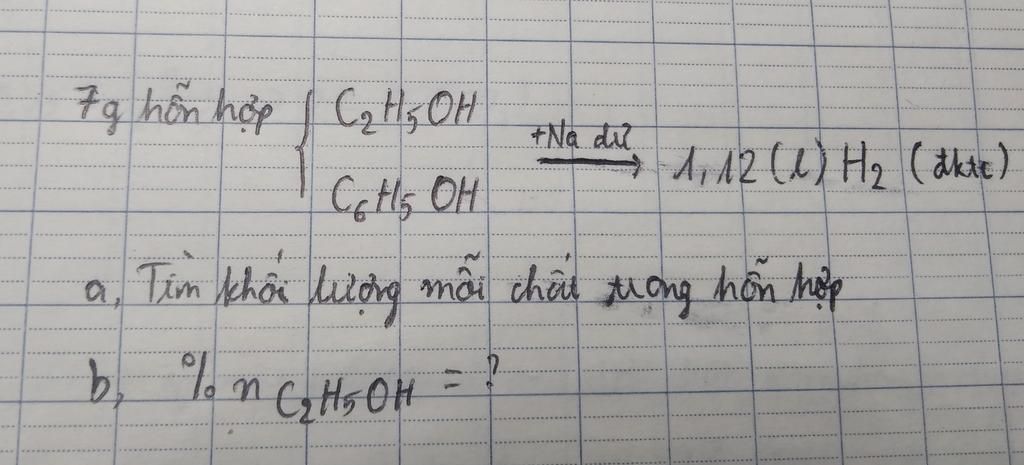 7g hỗn hợp { C₂H₅OH
C₆H₅OH
+Na dư → 1,12 (l) H₂ (đktc)
a, Tìm khối lượng mỗi chất trong hỗn hợp
b, % n C₂H₅OH = ?